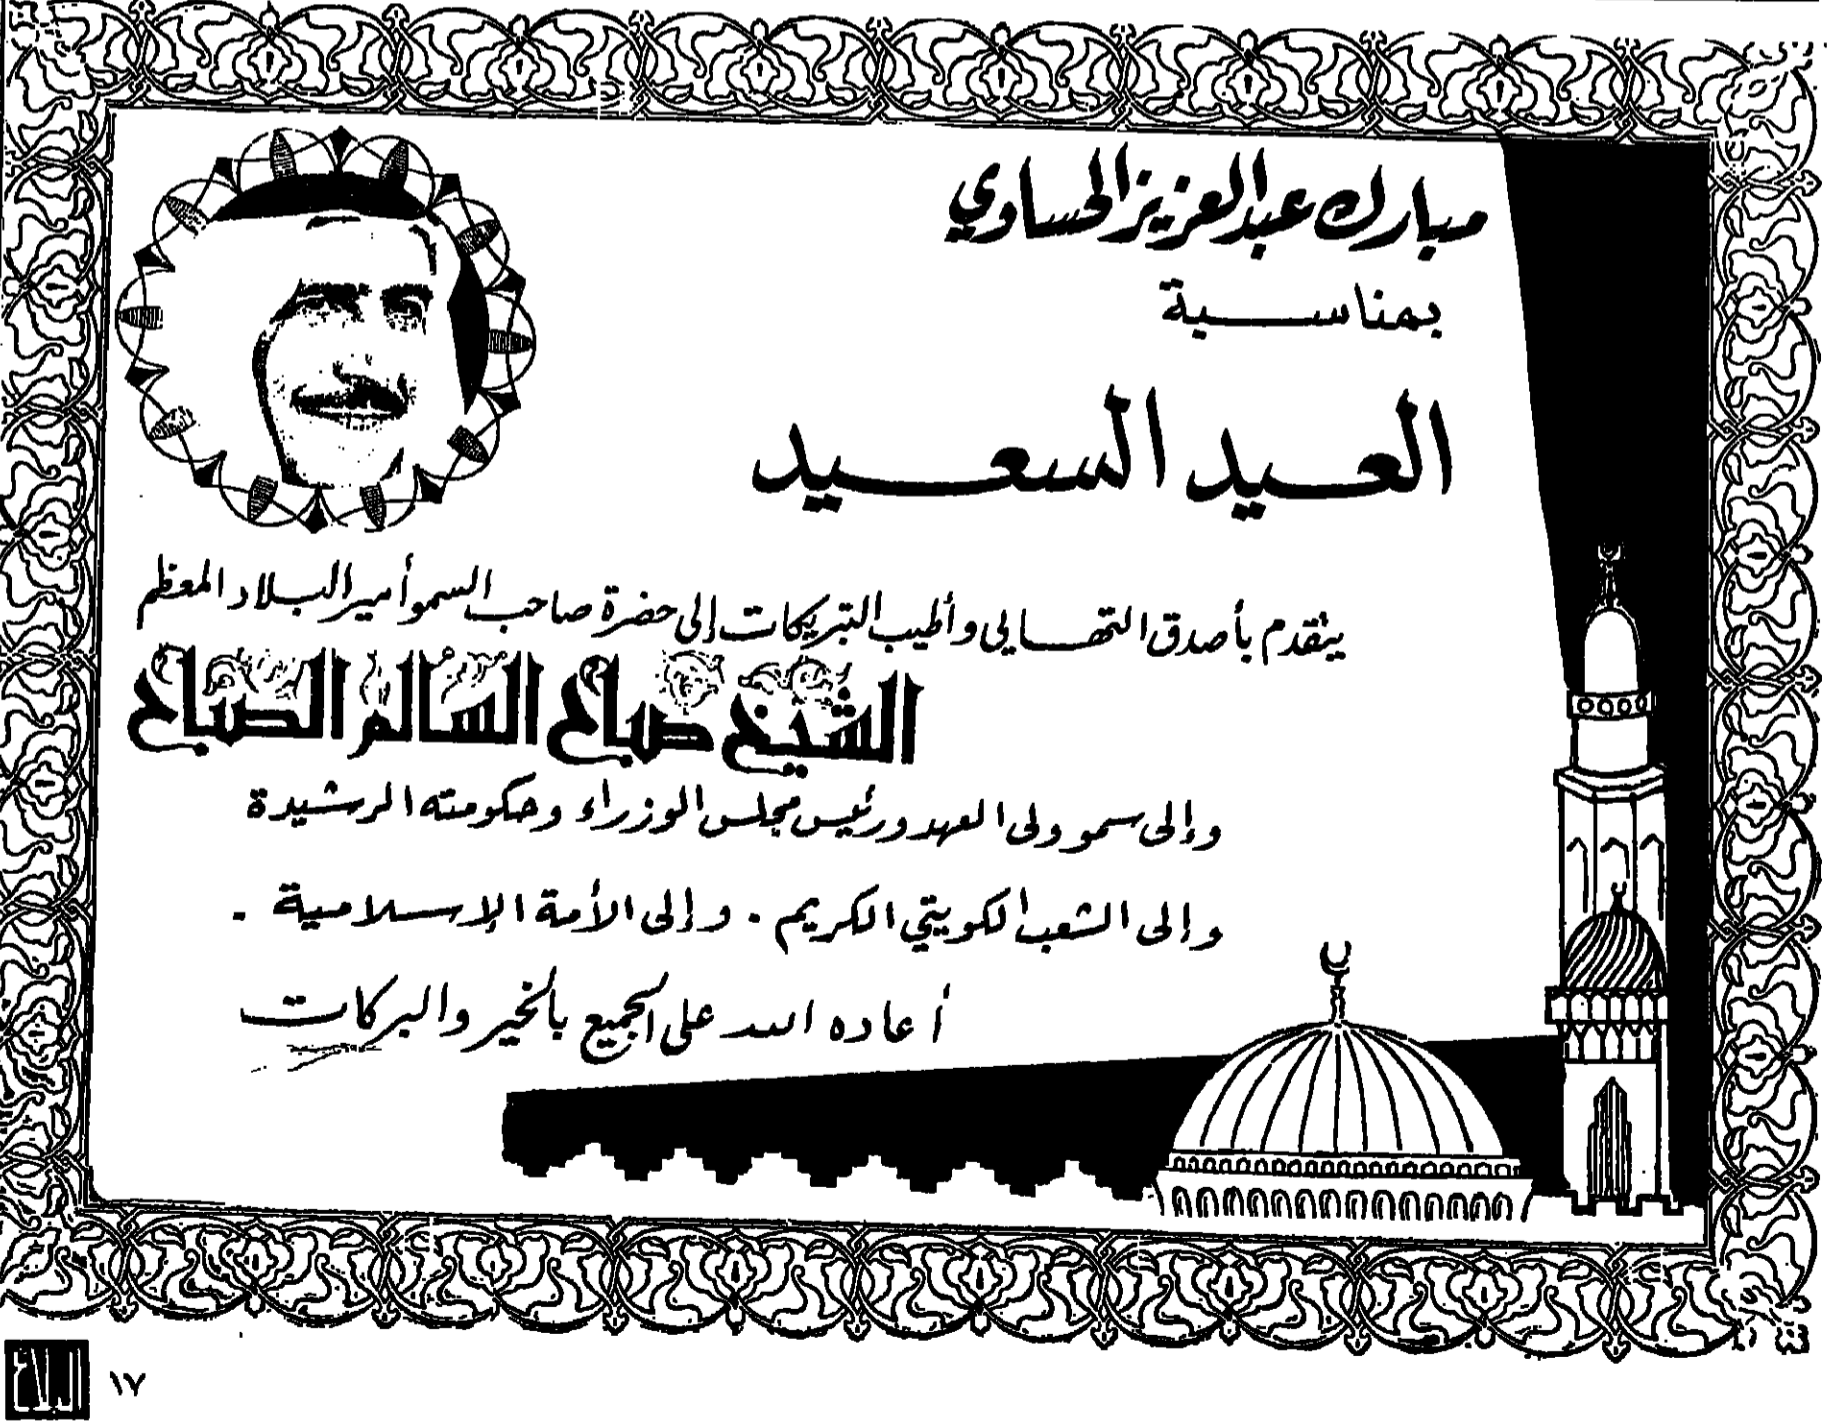 مبارك عبدالعزيز الحساوي
بمناسبة
العيد السعيد
يتقدم بأصدق التهاني وأطيب التبريكات إلى حضرة صاحب السمو أمير البلاد المعظم
الشيخ صباح السالم الصباح
وإلى سمو ولى العهد ورئيس مجلس الوزراء وحكومته الرشيدة
وإلى الشعب الكويتي الكريم . وإلى الأمة الإسلامية .
أعاده الله على الجميع بالخير والبركات
البلاغ
١٧